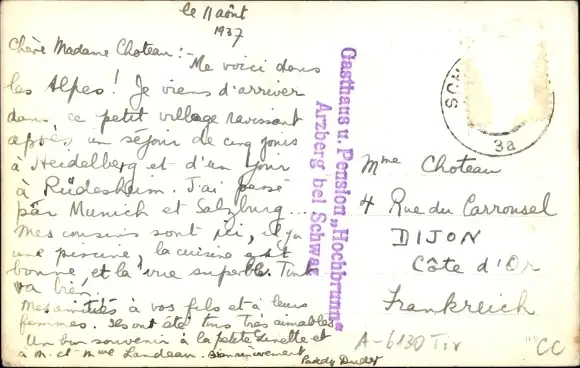 le 11 août
1937
Chère Madame Choteau: - Me voici dans
les Alpes! Je viens d'arriver
dans ce petit village ravissant
après un séjour de cinq jours
à Heidelberg et d'un jour
à Rüdesheim. J'ai passé
par Munich et Salzburg...
Mes cousins sont ici, il y a
une piscine, la cuisine est
bonne, et la vue superbe. Tout
va bien.
Mes amitiés à vos fils et à leurs
femmes. Ils ont été tous très aimables
Un bon souvenir à la petite Linette et
à M. et Mme Landeau. Bien sincèrement
Gasthaus u. Pension „Hochbrunn"
Arzberg bei Schwaz
SCHW
3a
Mme Choteau
4 Rue du Carrousel
DIJON
Côte d'Or
Frankreich
A-6130 Tir
CC